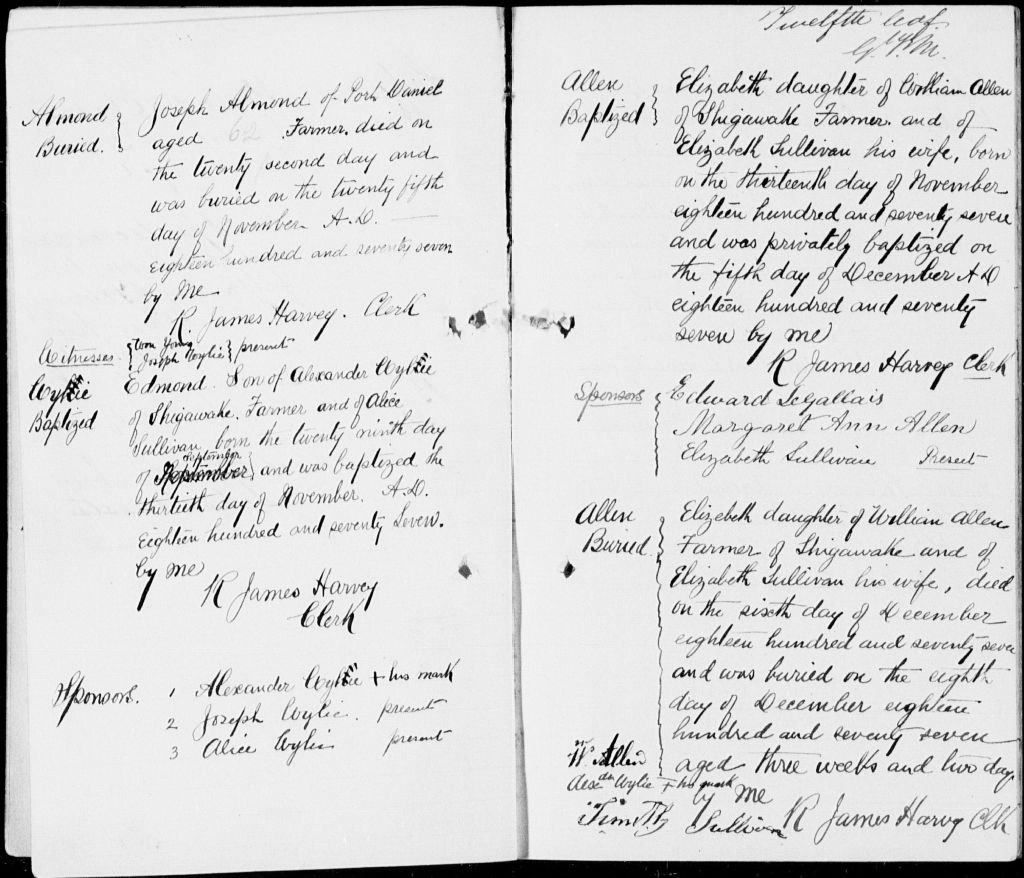 Almond
Buried.
Joseph Almond of Port Daniel
aged 62 Farmer, died on
the twenty second day and
was buried on the twenty fifth
day of November A.D.
eighteen hundred and seventy seven
by me
R. James Harvey. Clerk
Witnesses
Wm Young
Joseph Wylie } present
Wylie
Baptized
Edmond. Son of Alexander Wylie
of Shigawake, Farmer and of Alice
Sullivan born the twenty ninth day
September
of September and was baptized the
thirtieth day of November. A.D.
Eighteen hundred and seventy Seven.
by me
R James Harvey
Clerk
Sponsors.
1 Alexander Wylie + his mark
2 Joseph Wylie. present
3 Alice Wylie present
Twelfth leaf
Allen
Baptized
Elizabeth daughter of William Allen
of Shigawake Farmer. and of
Elizabeth Sullivan his wife, born
on the thirteenth day of November
eighteen hundred and seventy seven
and was privately baptized on
the fifth day of December A D
eighteen hundred and seventy
seven by me
R James Harvey Clerk
Sponsors
Edward Legallais
Margaret Ann Allen
Elizabeth Sullivan Present
Allen
Buried
Elizabeth daughter of William Allen
Farmer of Shigawake and of
Elizabeth Sullivan his wife, died
on the sixth day of December
eighteen hundred and seventy seven
and was buried on the eighth
day of December eighteen
hundred and seventy seven
aged three weeks and two day
by me
R James Harvey Clk
Wm Allen
Alexdr Wylie + his mark
Timothy Sullivan